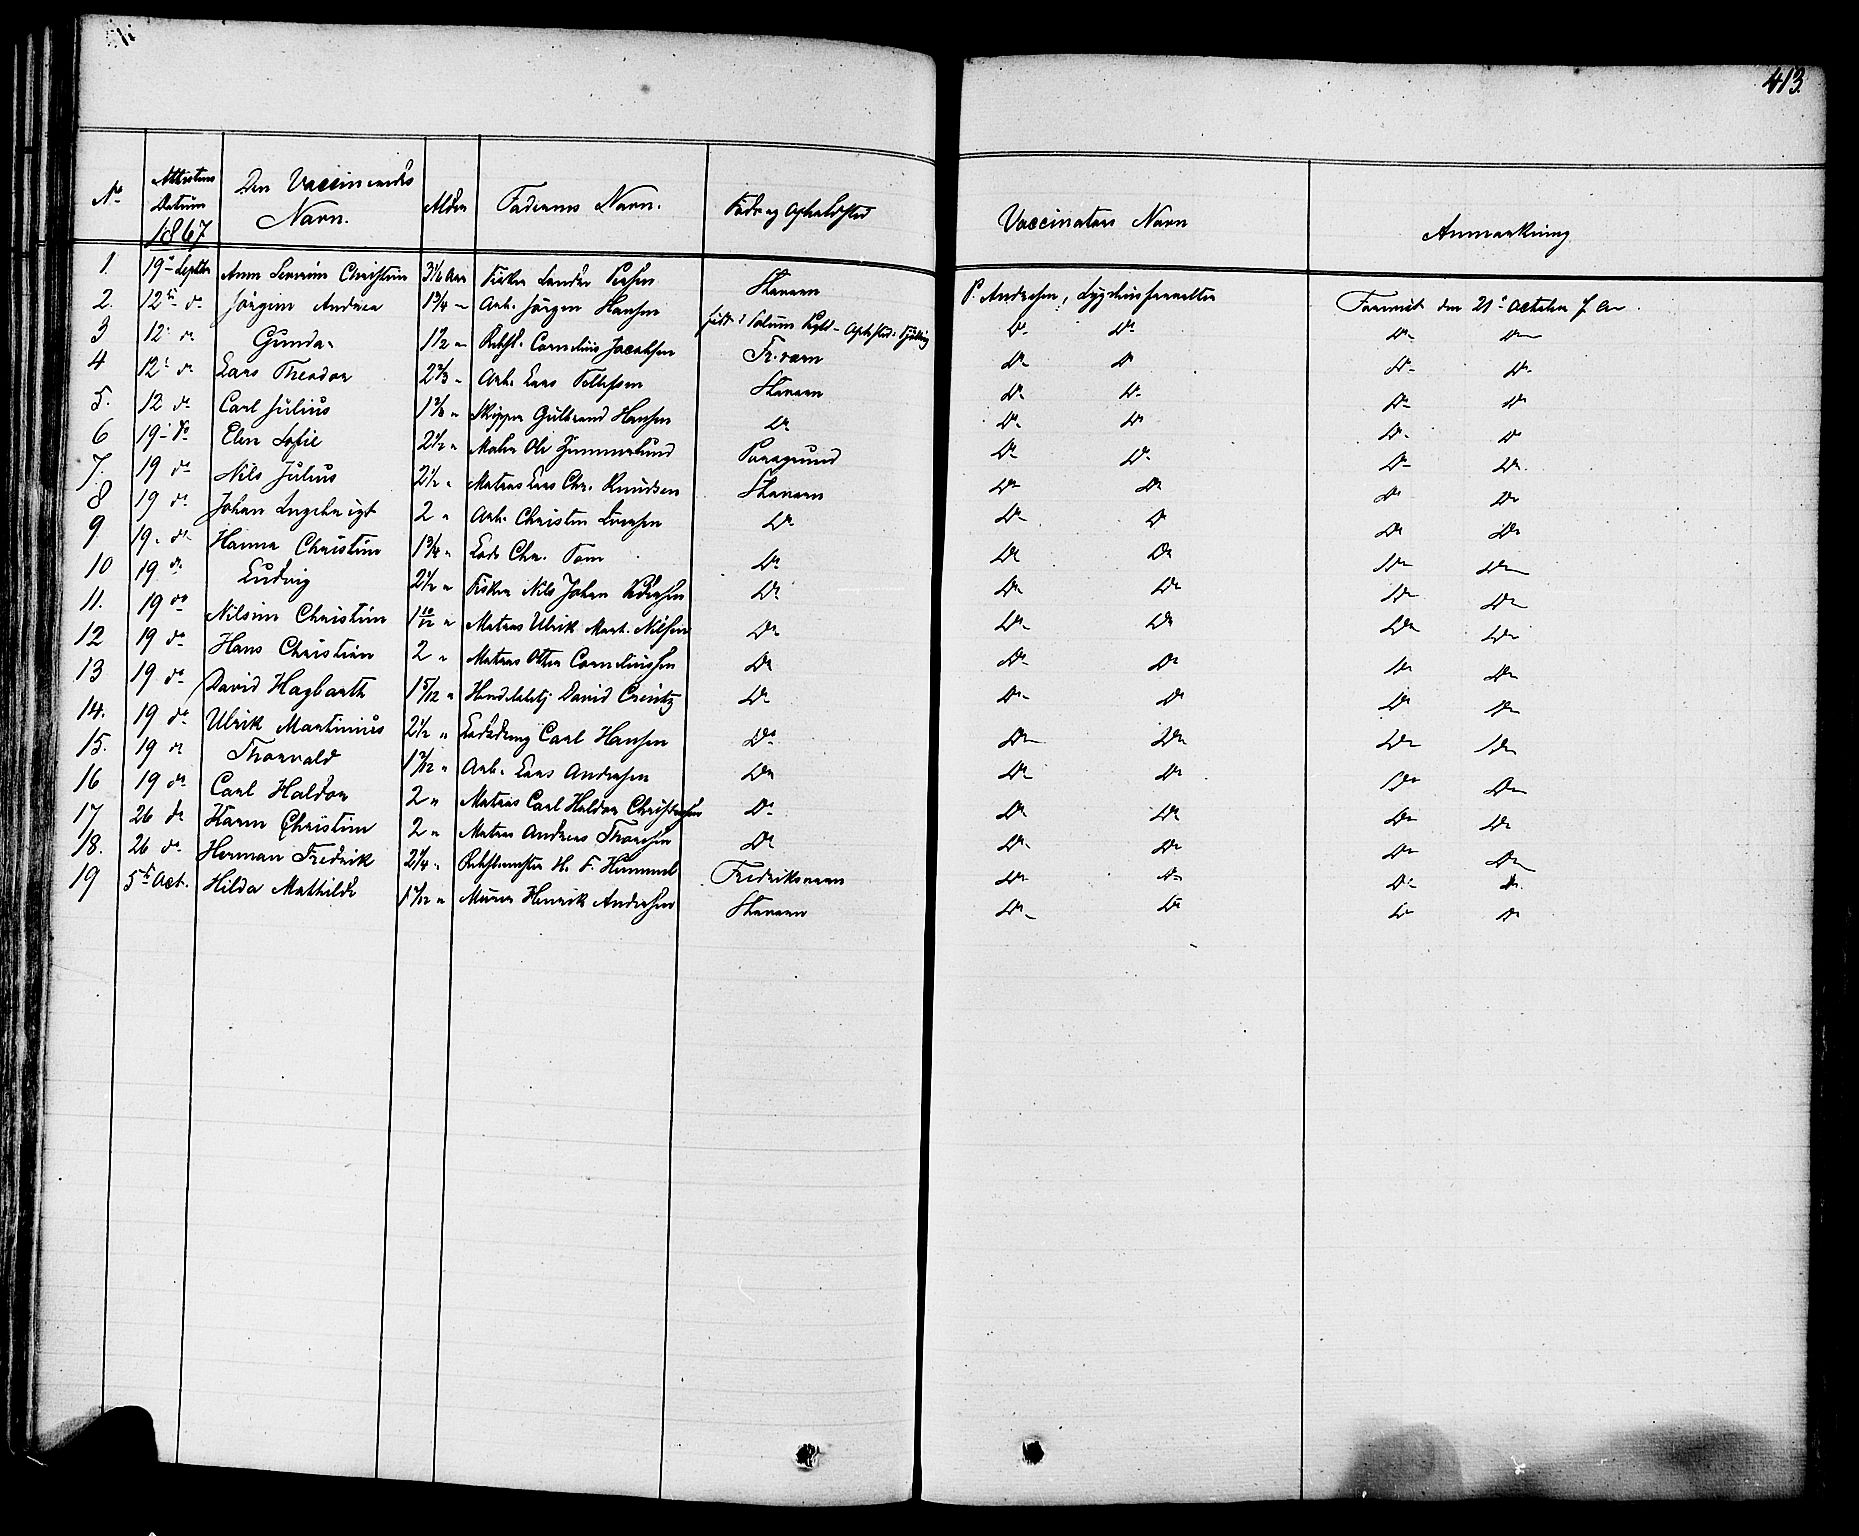 413.
No Attestens Datum 1867 Den Vaccineredes Navn. Alder Faderens Navn. Føde og Opholdsted Vaccinators Navn Anmærkning
1. 19de Septbr Anne Severine Christine 3 1/6 Aar Fisker Sander Stavern P. Andresen, Sygehusforvalter Fremvist den 21de October f. Aar.
2. 12te do Jörgen Andrea 1 3/4 " Arb. Jörgen Hansen født i Solum Opholdsted: Do Do Do Do
3 12te do Gunda 1 1/2 " Rebsl. Cornelius Jacobsen Fr.værn Do Do Do Do
4 12te do Lars Theodor 2 2/3 " Arb. Lars Tollefsen Stavern Do Do Do Do
5. 12 do Carl Julius 1 2/3 " Skipper Gulbrand Hansen Do Do Do Do Do
6 19 Do Elen Sofie 2 1/2 " Maler Ole Zimmerlund Porsgrund Do Do Do Do
7. 19 do Nils Julius 2 1/2 " Matros Lars Chr. Knudsen Stavern Do Do Do Do
8 19 do Johan Ingebregt 2 " Arb. Christen Do Do Do Do Do
9 19. do Hanna Christine 1 3/4 " Lods Chr. Do Do Do Do Do
10 19 do Ludvig 2 1/2 " Fisker Nils Johan Pedersen Do Do Do Do Do
11. 19 do Nilsine Christine 1 10/12 " Matros Ulrik Mart. Nilsen Do Do Do Do Do
12 19 do Hans Christian 2 " Matros Otter Corneliussen Do Do Do Do Do
13 19 do David Hagbarth 1 5/12 " Handelsbetj David Creutz Do Do Do Do Do
14. 19 do Ulrik Martinius 2 1/2 " Lodsdreng Carl Hansen Do Do Do Do Do
15. 19 do Thorvald 1 7/12 " Arb. Lars Andersen Do Do Do Do Do
16 19 do Carl Haldor 2 " Matros Carl Haldor Christensen Do Do Do Do Do
17 26 do Karen Christine 2 " Matros Andreas Thoresen Do Do Do Do Do
18. 26 do Herman Fredrik 2 1/4 " H. F. Hummel Fredriksværn Do Do Do Do
19 5te Oct. Hilda Mathilde 1 7/12 " Murer Henrik Andersen Stavern Do Do Do Do